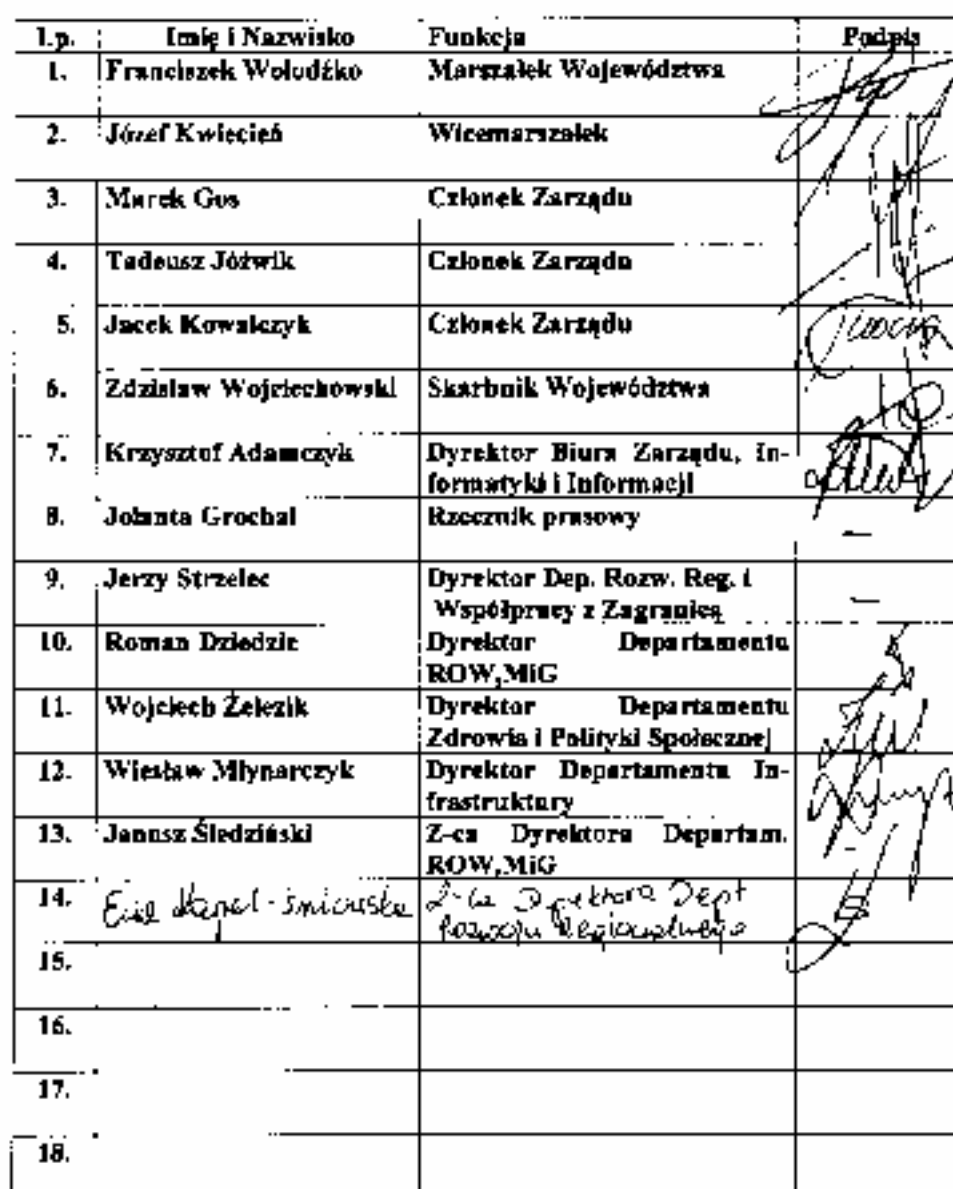 L.p. Imię i Nazwisko Funkcja Podpis
1. Franciszek Wołodźko Marszałek Województwa
2. Józef Kwiecień Wicemarszałek
3. Marek Gos Członek Zarządu
4. Tadeusz Jóźwik Członek Zarządu
5. Jacek Kowalczyk Członek Zarządu
6. Zdzisław Wojciechowski Skarbnik Województwa
7. Krzysztof Adamczyk Dyrektor Biura Zarządu, In-
formatyki i Informacji
8. Jolanta Grochal Rzecznik prasowy –
9. Jerzy Strzelec Dyrektor Dep. Rozw. Reg. i
Współpracy z Zagranicą –
10. Roman Dziedzic Dyrektor Departamentu
ROW,MiG
11. Wojciech Żelezik Dyrektor Departamentu
Zdrowia i Polityki Społecznej
12. Wiesław Młynarczyk Dyrektor Departamentu In-
frastruktury
13. Janusz Śledziński Z-ca Dyrektora Departam. –
ROW,MiG
14. Z-ca Dyrektora Dept
Rozwoju Regionalnego
15.
16.
17.
18.